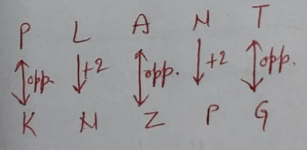 P L A N T
opp. +2 opp. +2 opp.
K N Z P G